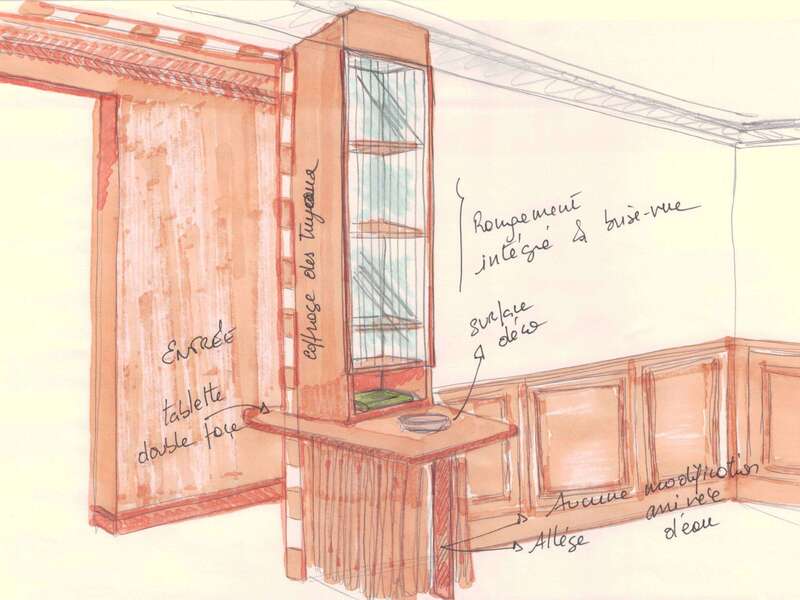 coffrage des tuyaux
Rangement
intégré & brise-vue
surface
déco
ENTRÉE
tablette
double face
Aucune modification
arrivée
d'eau
Allége